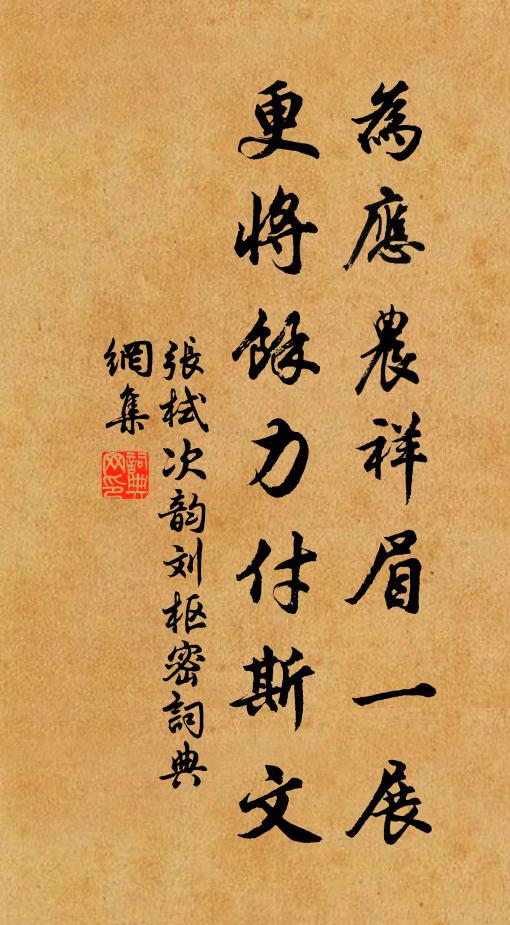 為應農祥眉一展
更將餘力付斯文
張栻次韵刘枢密詞典
網集
詞典
网印